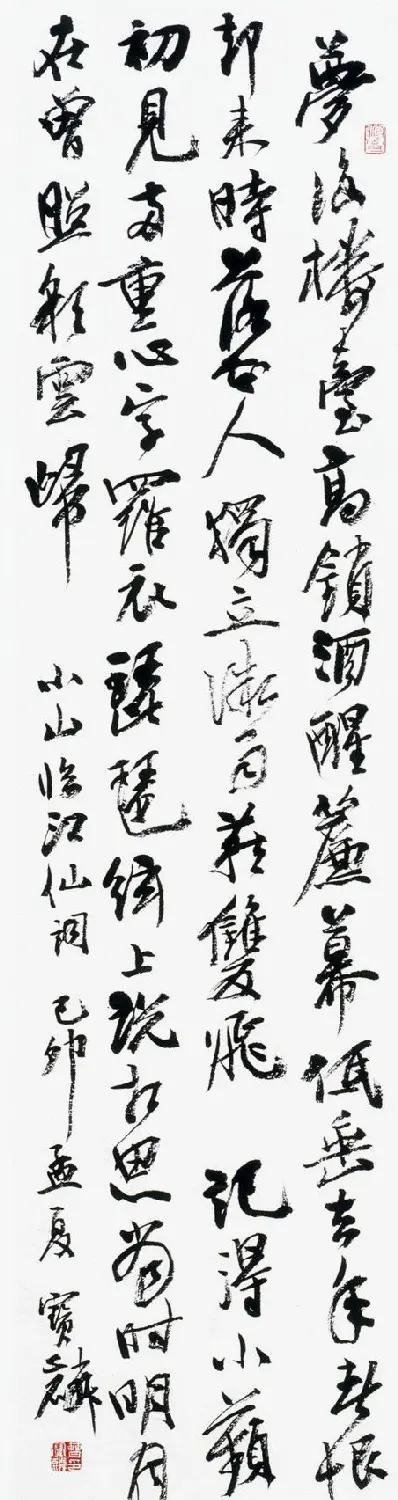 夢後樓臺高鎖酒醒簾幕低垂去年春恨
却來時落花人獨立微雨燕雙飛 記得小蘋
初見兩重心字羅衣琵琶絃上說相思當時明月
在曾照彩雲歸 小山臨江仙詞 己卯孟夏寶麟